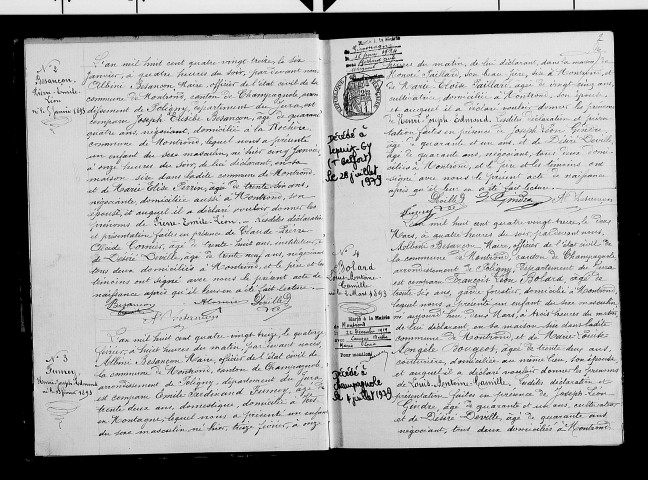 N° 2
Besançon
Pierre-Emile-
Léon
né le 5 janvier 1893
L'an mil huit cent quatre-vingt treize, le six
janvier, à quatre heures du soir, par devant nous
Albin Besançon Maire, officier de l'état civil de la
commune de Montrond, canton de Champagnole, arron-
dissement de Poligny, département du Jura, est
comparu Joseph Elisée Besançon, âgé de quarante
quatre ans, négociant, domicilié à la Rochère
commune de Montrond, lequel nous a présenté
un enfant du sexe masculin, né hier cinq janvier
à onze heures du soir, de lui déclarant, en sa
maison sise dans ladite commune de Montrond,
et de Marie Elise Perrin, âgée de trente six ans,
négociante, domiciliée aussi à Montrond, son
épouse, et auquel il a déclaré vouloir donner les
prénoms de Pierre-Emile-Léon. Lesdites déclaration
et présentation faites en présence de Claude Pierre
Cloïde Cornier, âgé de trente huit ans, instituteur, et
de Désiré Deville, âgé de trente neuf ans, négociant
tous deux domiciliés à Montrond, et le père et les
témoins ont signé avec nous le présent acte de
naissance après qu'il leur en a été fait lecture.
Besançon
Deville D
Ain Besançon
N° 3
Fumey
Henri-Joseph-Edmond
né le 13 février 1893
L'an mil huit cent quatre-vingt treize, le quatorze
février, à huit heures du matin, par devant nous
Albin Besançon Maire, officier de l'état civil de
la commune de Montrond, canton de Champagnole
arrondissement de Poligny, département du Jura
est comparu Emile Ferdinand Fumey, âgé de
trente deux ans, domestique, domicilié à
en Montagne, lequel nous a présenté un enfant
du sexe masculin né hier, treize février, à onze
heures du matin, de lui déclarant, dans la maison de
Honoré Paillard, son beau père, sise à Montrond, et
de Marie Paillard, âgée de vingt-cinq ans,
cultivatrice, domiciliée à Montrond, son épouse,
et auquel il a déclaré vouloir donner les prénoms
de Henri-Joseph-Edmond. Lesdites déclaration et présen-
tation faites en présence de Joseph Léon Gendre,
âgé de quarante et un ans, et de Désiré Deville,
âgé de quarante ans, négociants, tous deux domi-
ciliés à Montrond, et le père et les témoins ont
signé avec nous le présent acte de naissance
après qu'il leur en a été fait lecture.
Deville D
L. Gendre
Ain Besançon
Fumey
Décédé à
Lepuix-Gy
(T. Belfort)
le 28 juillet
1979
N° 4
Bolard
Louis-Antoine
Camille
né le 2 Mars 1893
Marié à la Mairie
de Montrond
le 22 Décembre 1919
avec
Marie
Pour mention
Décédé à
Champagnole
le 4 juillet 1979
L'an mil huit cent quatre-vingt treize, le deux
Mars, à quatre heures du soir, par devant nous,
Albin Besançon Maire, officier de l'état civil de
la commune de Montrond, canton de Champagnole,
arrondissement de Poligny, département du Jura
est comparu François Léon Bolard, âgé de
trente six ans, garde forestier, domicilié à Montrond,
lequel nous a présenté un enfant du sexe masculin,
né aujourd'hui deux Mars, à trois heures du matin,
de lui déclarant, en sa maison sise dans ladite
commune de Montrond, et de Marie Louise
Angèle Bouqeos, âgée de trente deux ans,
domiciliée au même lieu, son épouse,
et auquel il a déclaré vouloir donner les prénoms
de Louis-Antoine-Camille. Lesdites déclaration et
présentation faites en présence de Joseph Léon
Gendre, âgé de quarante et un ans, cultivateur
et de Désiré Deville, âgé de quarante ans
négociant, tous deux domiciliés à Montrond